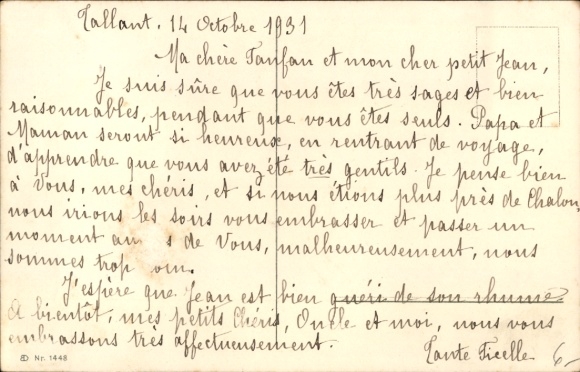 Tallant. 14 Octobre 1931
Ma chère Fanfan et mon cher petit Jean,
Je suis sûre que vous êtes très sages et bien
raisonnables, pendant que vous êtes seuls. Papa et
Maman seront si heureux, en rentrant de voyage,
d'apprendre que vous avez été très gentils. Je pense bien
à Vous, mes chéris, et si nous étions plus près de Chalon,
nous irions les soirs vous embrasser et passer un
moment de Vous, malheureusement, nous
sommes trop
J'espère que Jean est bien guéri de son rhume
A bientôt, mes petits Chéris, Oncle et moi, nous vous
embrassons très affectueusement.
Tante Ficelle
6,-
Nr. 1448